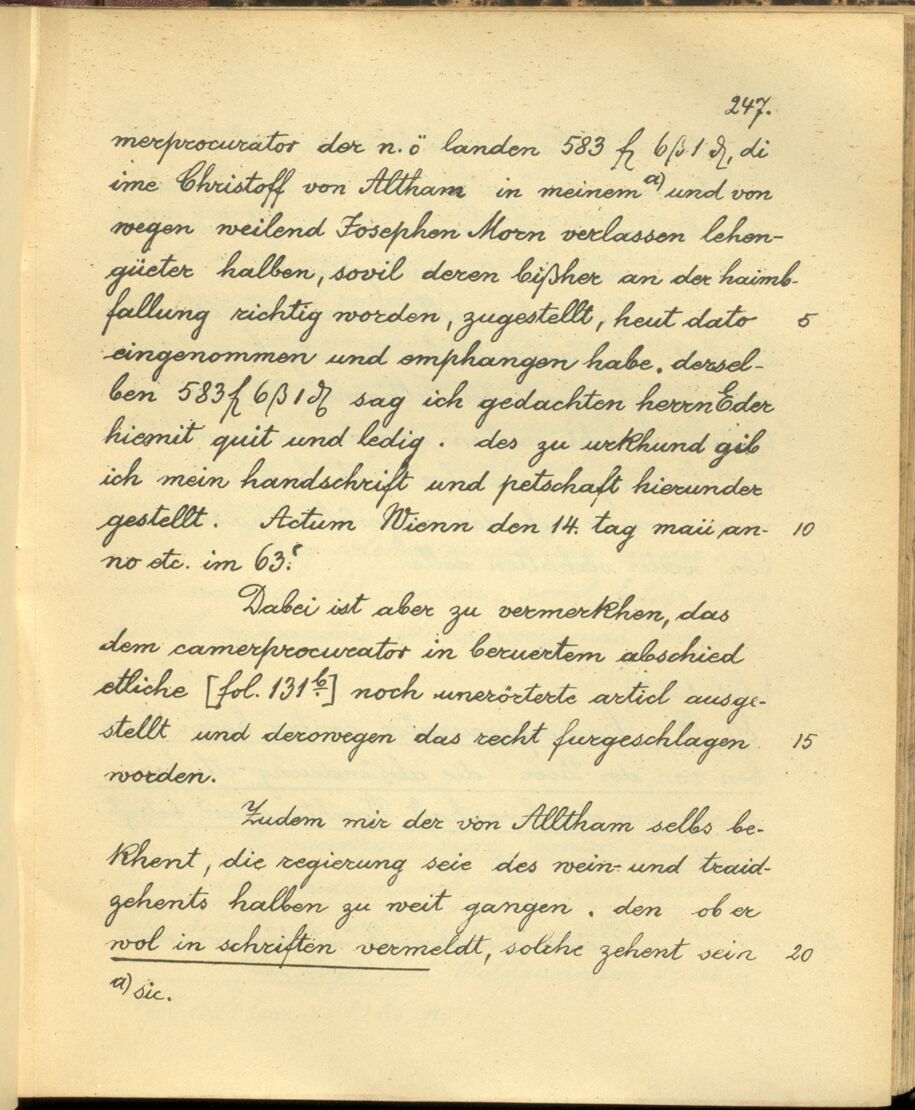 247.
merprocurator der n. ö landen 583 fl 6 ß 1 ₰, di
ime Christoff von Altham in meinem a) und von
wegen weilend Josephen Morn verlassen lehen-
güeter halben, sovil deren bißher an der haimb-
fallung richtig worden, zugestellt, heut dato 5
eingenommen und emphangen habe. dersel-
ben 583 fl 6 ß 1 ₰ sag ich gedachten herrn Eder
hiemit quit und ledig. des zu urkhund gib
ich mein handschrift und petschaft hierunder
gestellt. Actum Wienn den 14. tag maii an- 10
no etc. im 63.
Dabei ist aber zu vermerkhen, das
dem camerprocurator in beruertem abschied
etliche [fol. 131 b] noch unerörterte articl ausge-
stellt und derowegen das recht furgeschlagen 15
worden.
Zudem mir der von Alltham selbs be-
khent, die regierung seie des wein- und traid-
zehents halben zu weit gangen. den ob er
wol in schriften vermeldt, solche zehent sein 20
a) sic.